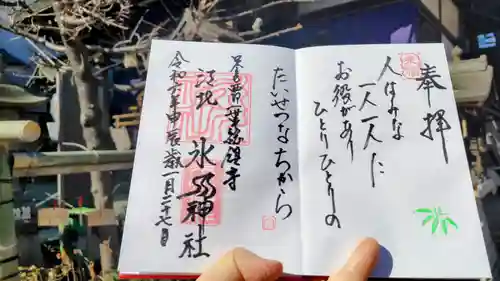 奉拝
人はみな
一人一人に
お役があり
ひとりひとりの
たいせつなちから
江北 氷川神社
令和六年甲辰歳一月二十七日